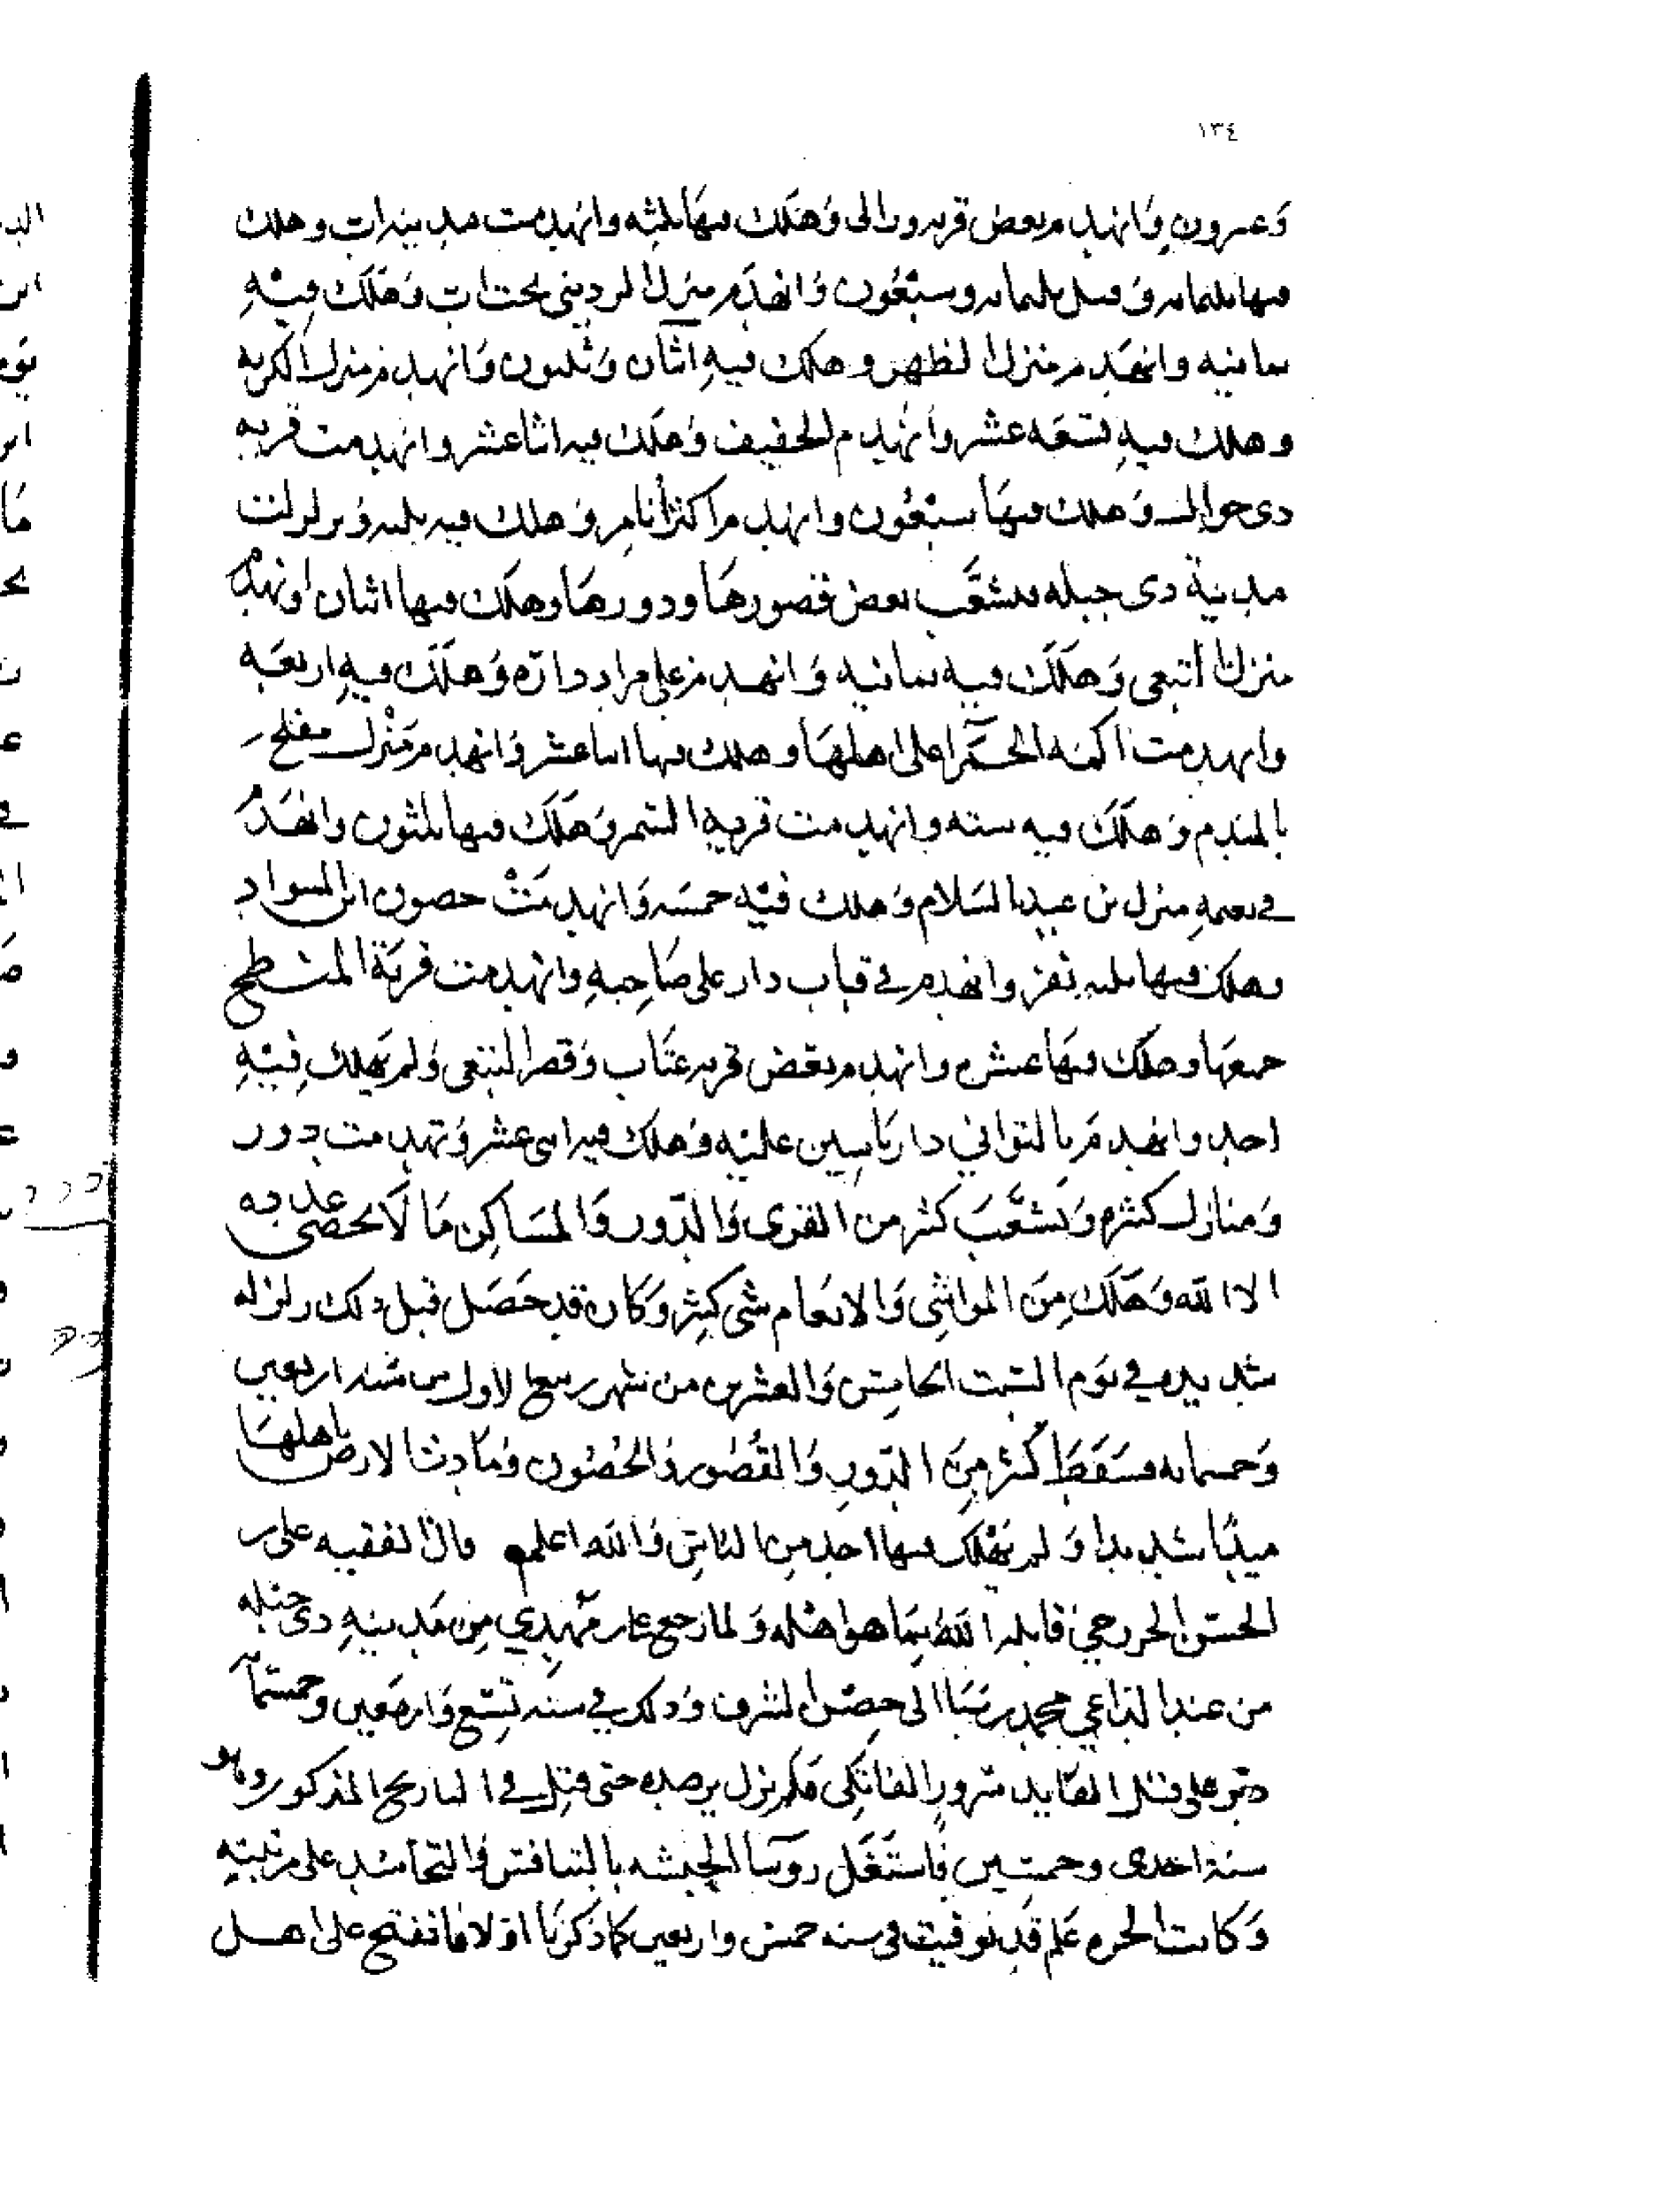 ١٣٤
وعسرون وانهدم بعض قريه ورالى وهلك فيها ثلثه وانهدمت مدينه اب وهلك
فيها ثلثمايه وقيل ثلثمايه وسبعون وانهدم منزل الردينى بحتات وهلك فيه
ثمانيه وانهدم منزل الظهر وهلك فيه اثنان وثلثون وانهدم منزل الكريه
وهلك فيه تسعه عشر وانهدم الحفيف وهلك فيه اثنا عشر وانهدمت قريه
دى حوالـ وهلك فيها سبعون وانهدم اكثر أنامر وهلك فيه ثلثه وتزلزلت
مدينة دى جبله فتشعب بعض قصورها ودورها وهلك فيها اثنان وانهدم
منزل التبعى وهلك فيه ثمانيه وانهدم على مراد داره وهلك فيه اربعه
وانهدمت اكمه الحكم اعلى اهلها وهلك فيها اثنا عشر وانهدم منزل مفلح
بالمندم وهلك فيه سته وانهدمت قريه الشمر وهلك فيها ثلثون وانهدم
في نعيمه منزل بن عبد السلام وهلك فيه خمسه وانهدمت حصون ابن المسواد
وهلك فيها ثلثه نفر وانهدم في قباب دار على صاحبه وانهدمت قرية المشطح
جميعها وهلك فيها عشره وانهدم بعض قريه عتاب وقصر التبعى ولم يهلك فيه
احد وانهدم بالتوانى دار ياسين عليه وهلك فيه اثنى عشر وتهدمت دور
ومنازل كثيره وتشعب كثير من القرى والدور والمساكن ما لا يحصى عدده
الا الله وهلك من المواشى والانعام شى كثير وكان قد حصل قبل ذلك زلزله
شديده في يوم السبت الخامس والعشرين من شهر ربيع الاول من سنه اربعين
وخمسمايه فسقط كثير من الدور والقصور والحصون ومادت الارض باهلها
ميدًا شديدا ولم يهلك فيها احد من الناس والله اعلم قال الفقيه على بن
الحسن الخزرجي قابله الله بما هو اهله ولما رجع على بن مهدي من مدينه دى جبله
من عند الداعي محمد بن سبا الى حصن الشرف وذلك في سنه تسع واربعين وخمسمائه
دبر على قتل القايد سرور الفاتكى فلم يزل يرصده حتى قتل في التاريخ المذكور وهو
سنة احدى وخمسين فاستغل روسا الحبشه بالتنافس والتحاسد على مرتبته
وكانت الحره علم قد توفيت في سنه خمس واربعين كما ذكرنا اولا فانفتح على اهل